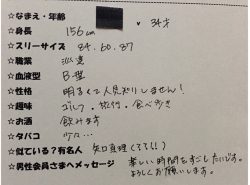 ☆なまえ・年齢 34才
☆身長 156cm
☆スリーサイズ 84.60.87
☆職業
☆血液型 B型
☆性格 明るくて人見知りしません!
☆趣味 ゴルフ・旅行・食べ歩き
☆お酒 飲みます
☆タバコ 少々…
☆似ている?有名人 矢口真理
☆男性会員さまへメッセージ 楽しい時間をすごしたいです。
よろしくお願いします。